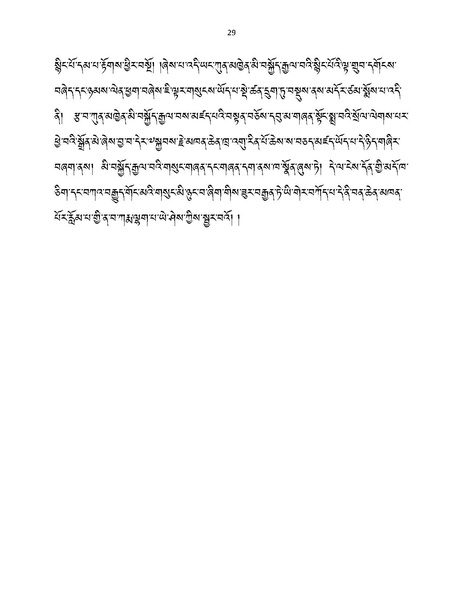 29
སྙིང་པོ་དམ་པ་རྟོགས་ཕྱིར་བསྔོ། །ཞེས་པ་འདི་ཡང་ཀུན་མཁྱེན་མི་བསྐྱོད་རྒྱལ་བའི་སྙིང་པོའི་ལྟ་གྲུབ་དགོངས་
བཞེད་དང་ཉམས་ལེན་ཕྱག་བཞེས་ཇི་ལྟར་གསུངས་ཡོད་པ་སྡེ་ཚན་དྲུག་ཏུ་བསྡུས་ནས་མདོར་ཙམ་སྨོས་པ་འདི་
ནི། རྩ་བ་ཀུན་མཁྱེན་མི་བསྐྱོད་རྒྱལ་བས་མཛད་པའི་བསྟན་བཅོས་དབུ་མ་གཞན་སྟོང་སྨྲ་བའི་སྲོལ་ལེགས་པར་
ཕྱེ་བའི་སྒྲོན་མེ་ཞེས་བྱ་བ་དེར་སྐྱབས་རྗེ་མཁན་ཆེན་ཁྲ་འགུ་རིན་པོ་ཆེས་ས་བཅད་མཛད་ཡོད་པ་དེ་ཉིད་གཞིར་
བཞག་ནས། མི་བསྐྱོད་རྒྱལ་བའི་གསུང་གཞན་དང་གཞན་དག་ནས་ཁ་སྣོན་ཞུས་ཏེ། དེ་ལ་ངེས་དོན་གྱི་མདོ་ཁ་
ཅིག་དང་བཀའ་བརྒྱུད་གོང་མའི་གསུང་མི་ཉུང་བ་ཞིག་གིས་ཟུར་བརྒྱན་ཏེ་ཡི་གེར་བཀོད་པ་དེ་ནི་བན་ཆེན་མཁན་
པོར་རློམ་པ་གྱི་ན་བ་ཀརྨ་ལྷག་པ་ཡེ་ཤེས་ཀྱིས་སྦྱར་བའོ། །